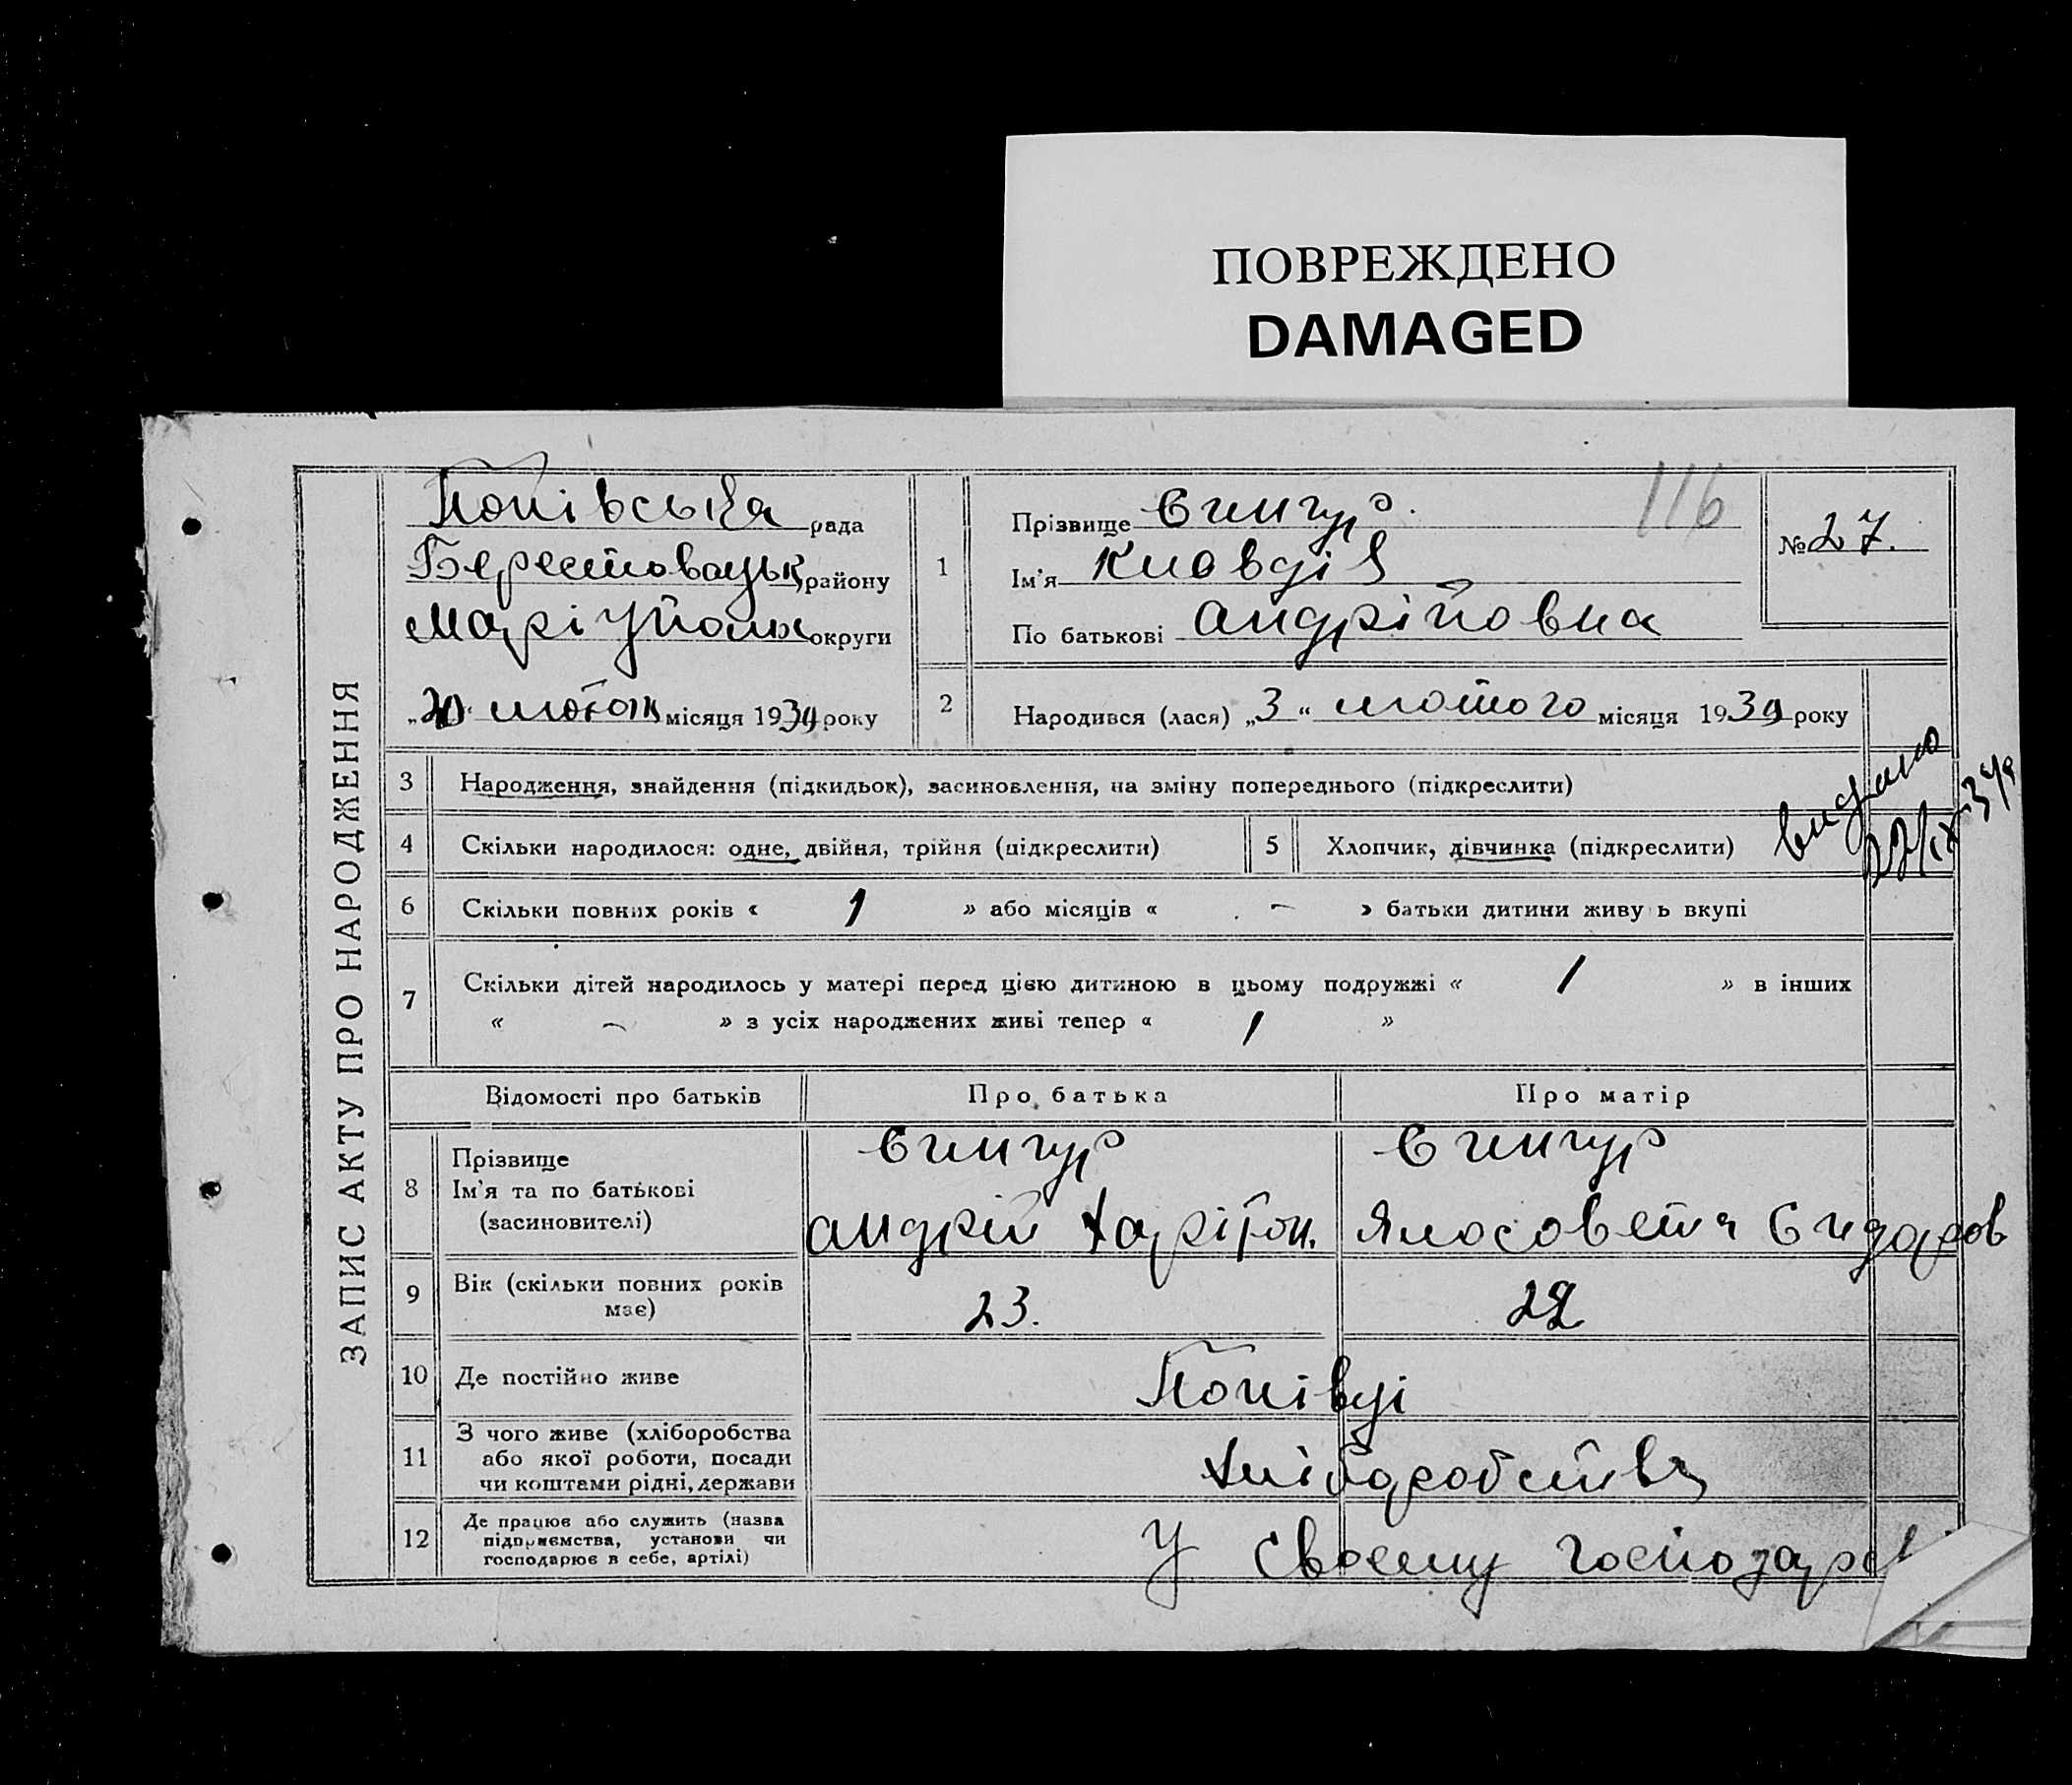 ПОВРЕЖДЕНО
DAMAGED
ЗАПИС АКТУ ПРО НАРОДЖЕННЯ
Попівська рада
Берестовацьк району
Маріуполь округи
„20“ лютого місяця 1930 року
1
Прізвище Снигур.
Ім'я Кловдія
По батькові Андрійовна
116
№ 27.
2
Народився (лася) „3“ лютого місяця 1930 року
3 Народження, знайдення (підкидьок), засиновлення, на зміну попереднього (підкреслити)
4 Скільки народилося: одне, двійня, трійня (підкреслити)
5 Хлопчик, дівчинка (підкреслити)
видано
6 Скільки повних років « 1 » або місяців « – » батьки дитини живу ь вкупі
7 Скільки дітей народилось у матері перед цією дитиною в цьому подружжі « 1 » в інших
« – » з усіх народжених живі тепер « 1 »
Відомості про батьків Про батька Про матір
8 Прізвище
Ім'я та по батькові
(засиновителі)
Снигур Снигур
Андрій Харітон. Ялосовета Сидоров
9 Вік (скільки повних років
має)
23. 22
10 Де постійно живе Попівці
11 З чого живе (хліборобства
або якої роботи, посади
чи коштами рідні, держави
Хліборобства
12 Де працює або служить (назва
підприємства, установи чи
господарює в себе, артілі)
У своему